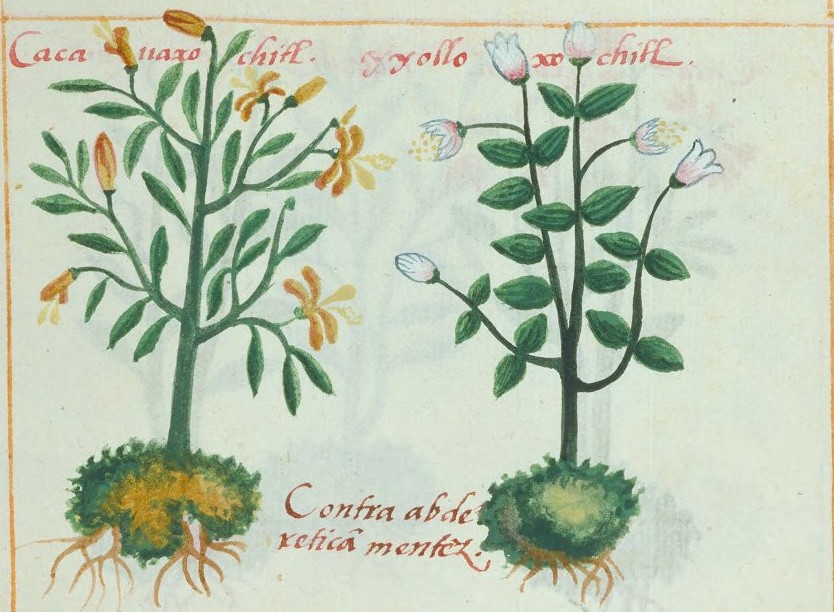 Caca uaxo chitl. Yyollo xo chitl.
Contra abde
reticā mentēz.